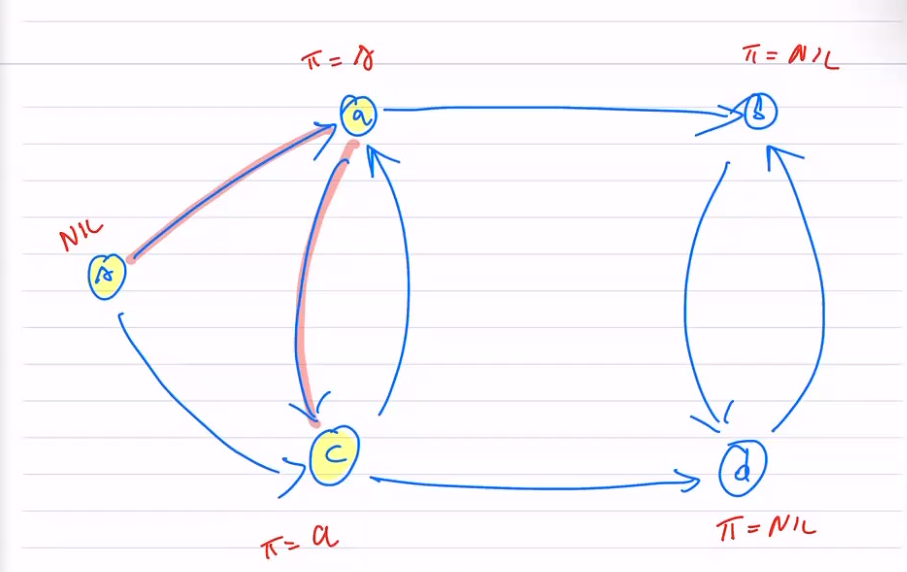 π = s
π = NIL
a
b
NIL
s
c
d
π = a
π = NIL